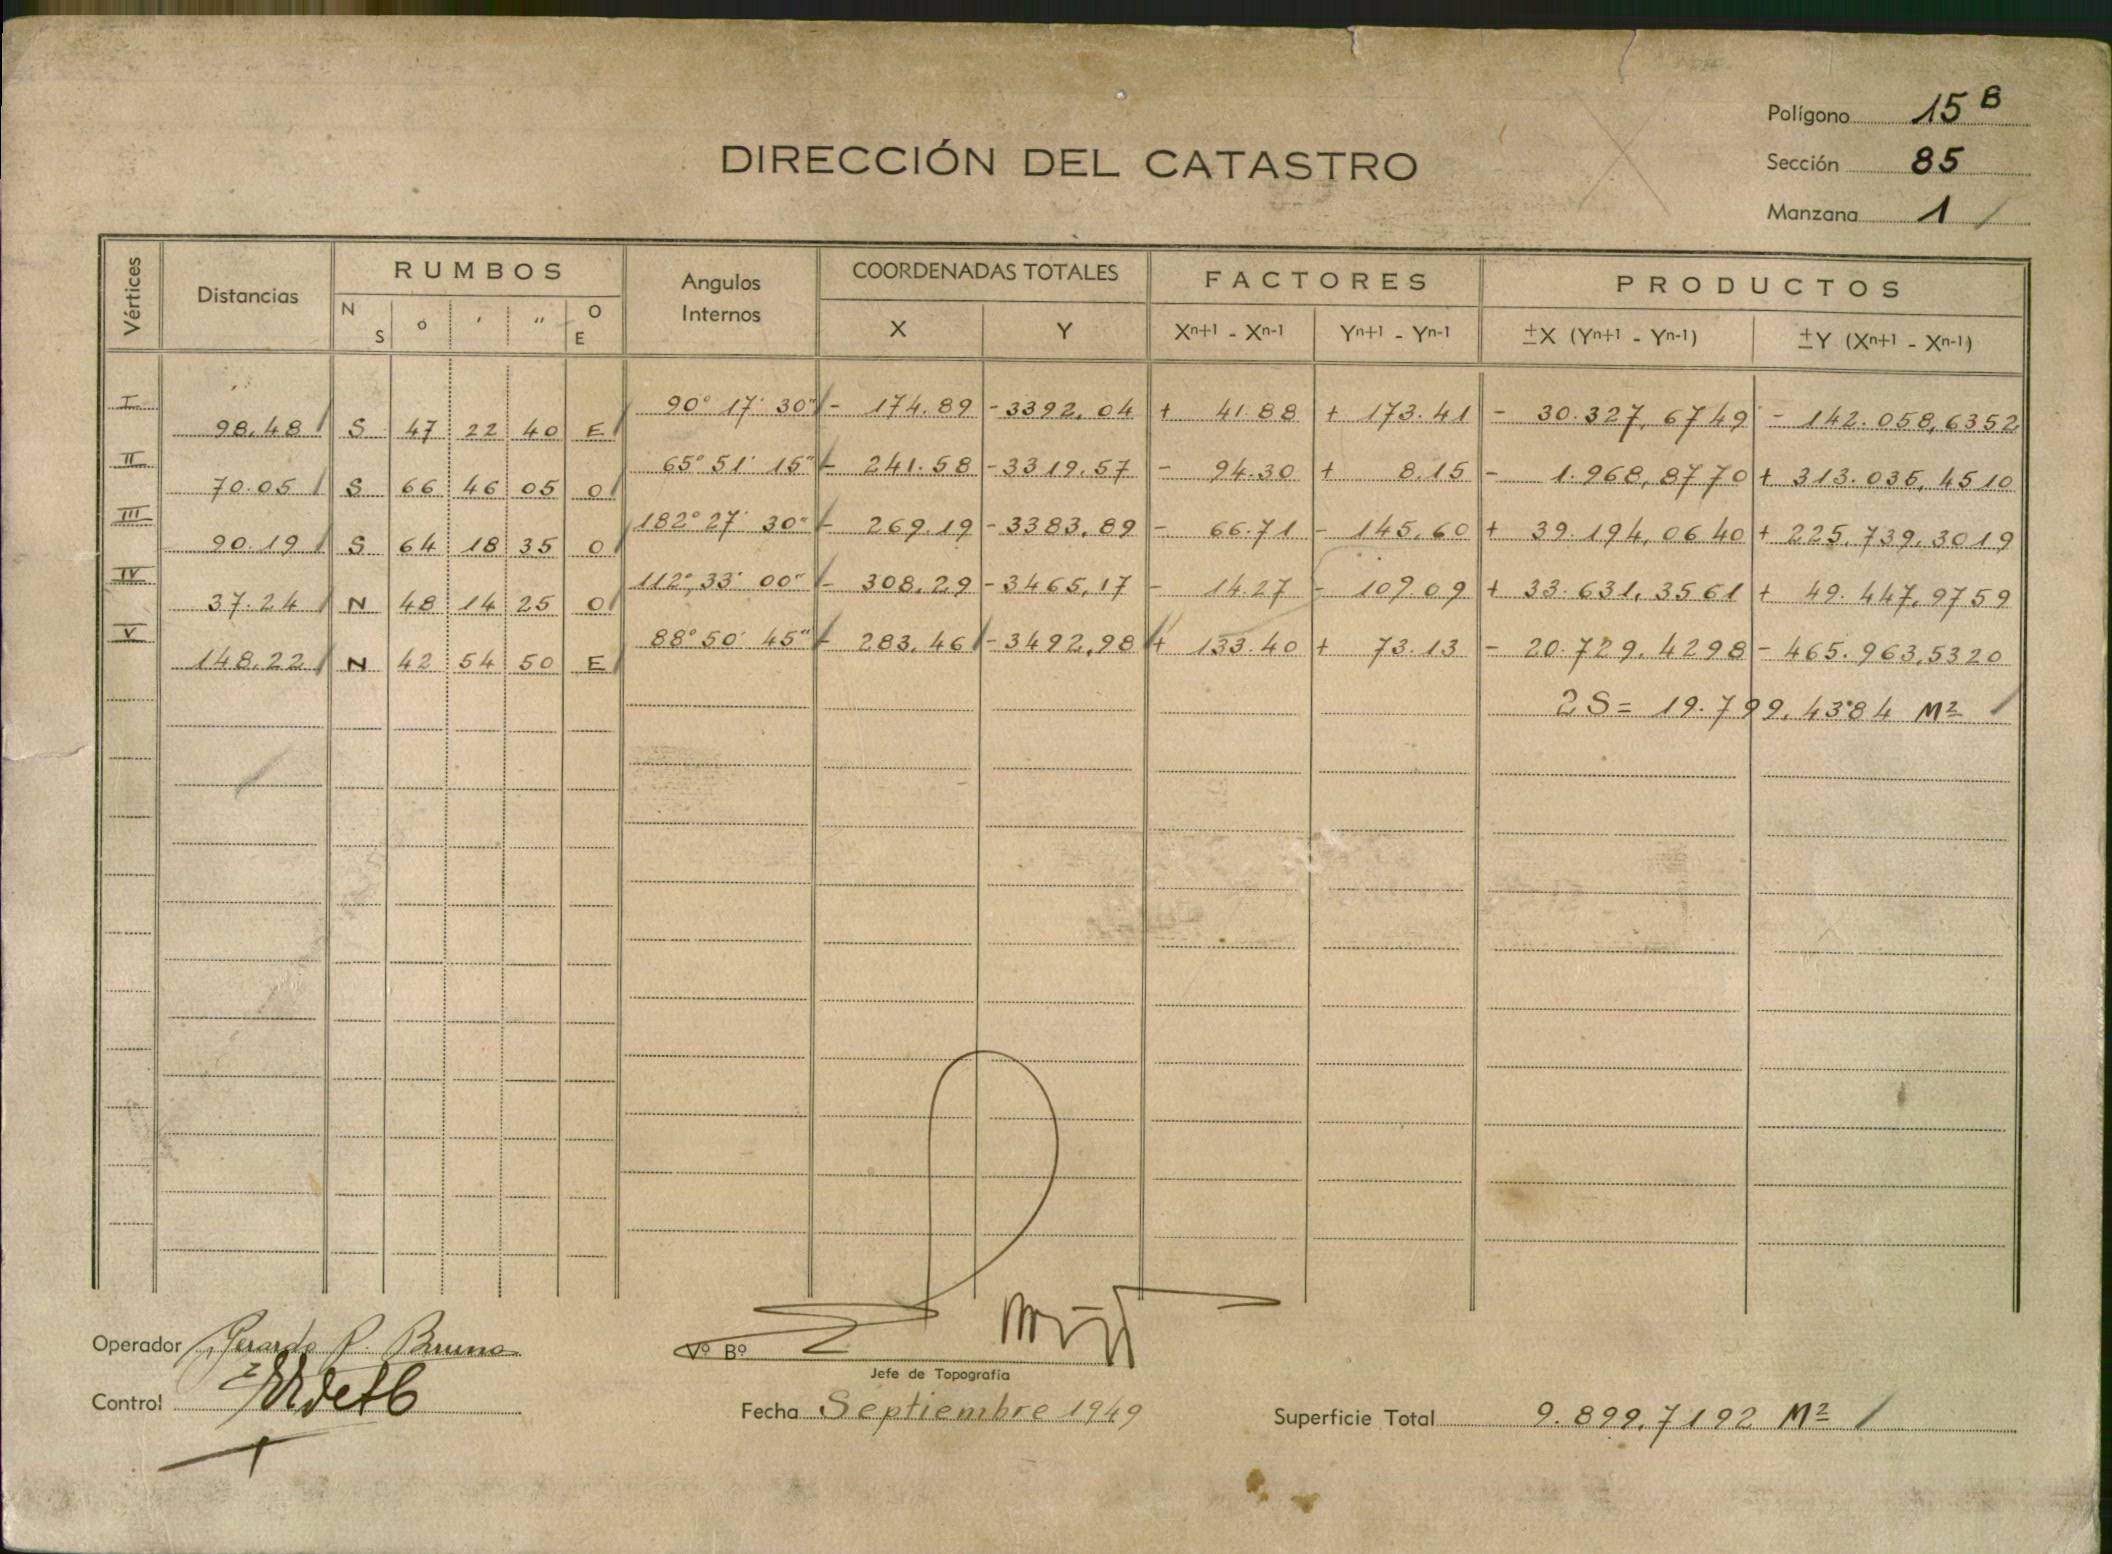 Polígono 15 B
DIRECCIÓN DEL CATASTRO
Sección 85
Manzana 1
Vértices Distancias RUMBOS Angulos Internos COORDENADAS TOTALES FACTORES PRODUCTOS
N S ° ' " O E X Y Xn+1 - Xn-1 Yn+1 - Yn-1 ±X (Yn+1 - Yn-1) ±Y (Xn+1 - Xn-1)
I 90° 17' 30" - 174.89 - 3392,04 + 41.88 + 173.41 - 30.327,6749 - 142.058,6352
98,48 S 47 22 40 E
II 65° 51' 15" - 241.58 - 3319.57 - 94.30 + 8.15 - 1.968,8770 + 313.035,4510
70.05 S 66 46 05 O
III 182° 27' 30" - 269.19 - 3383,89 - 66.71 - 145,60 + 39.194,0640 + 225.739,3019
90.19 S 64 18 35 O
IV 112° 33' 00" - 308,29 - 3465,17 - 14.27 - 109.09 + 33.631,3561 + 49.447,9759
37.24 N 48 14 25 O
V 88° 50' 45" - 283,46 - 3492,98 + 133.40 + 73.13 - 20.729,4298 - 465.963,5320
148,22 N 42 54 50 E
2S = 19.799,4384 M²
Operador Gerardo R. Bruno
Vº Bº
Jefe de Topografía
Control
Fecha Septiembre 1949
Superficie Total 9.899,7192 M²